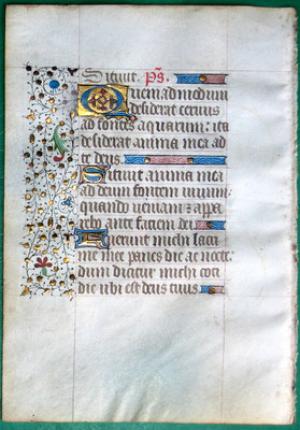 Sitiuit. Ps.
Quemadmodum
desiderat ceruus
ad fontes aquarum: ita
desiderat anima mea ad
te deus
Sitiuit anima mea
ad deum fontem uiuum:
quando ueniam et appa
rebo ante faciem dei
Fuerunt michi lacri
me mee panes die ac nocte:
dum dicitur michi coti
die ubi est deus tuus